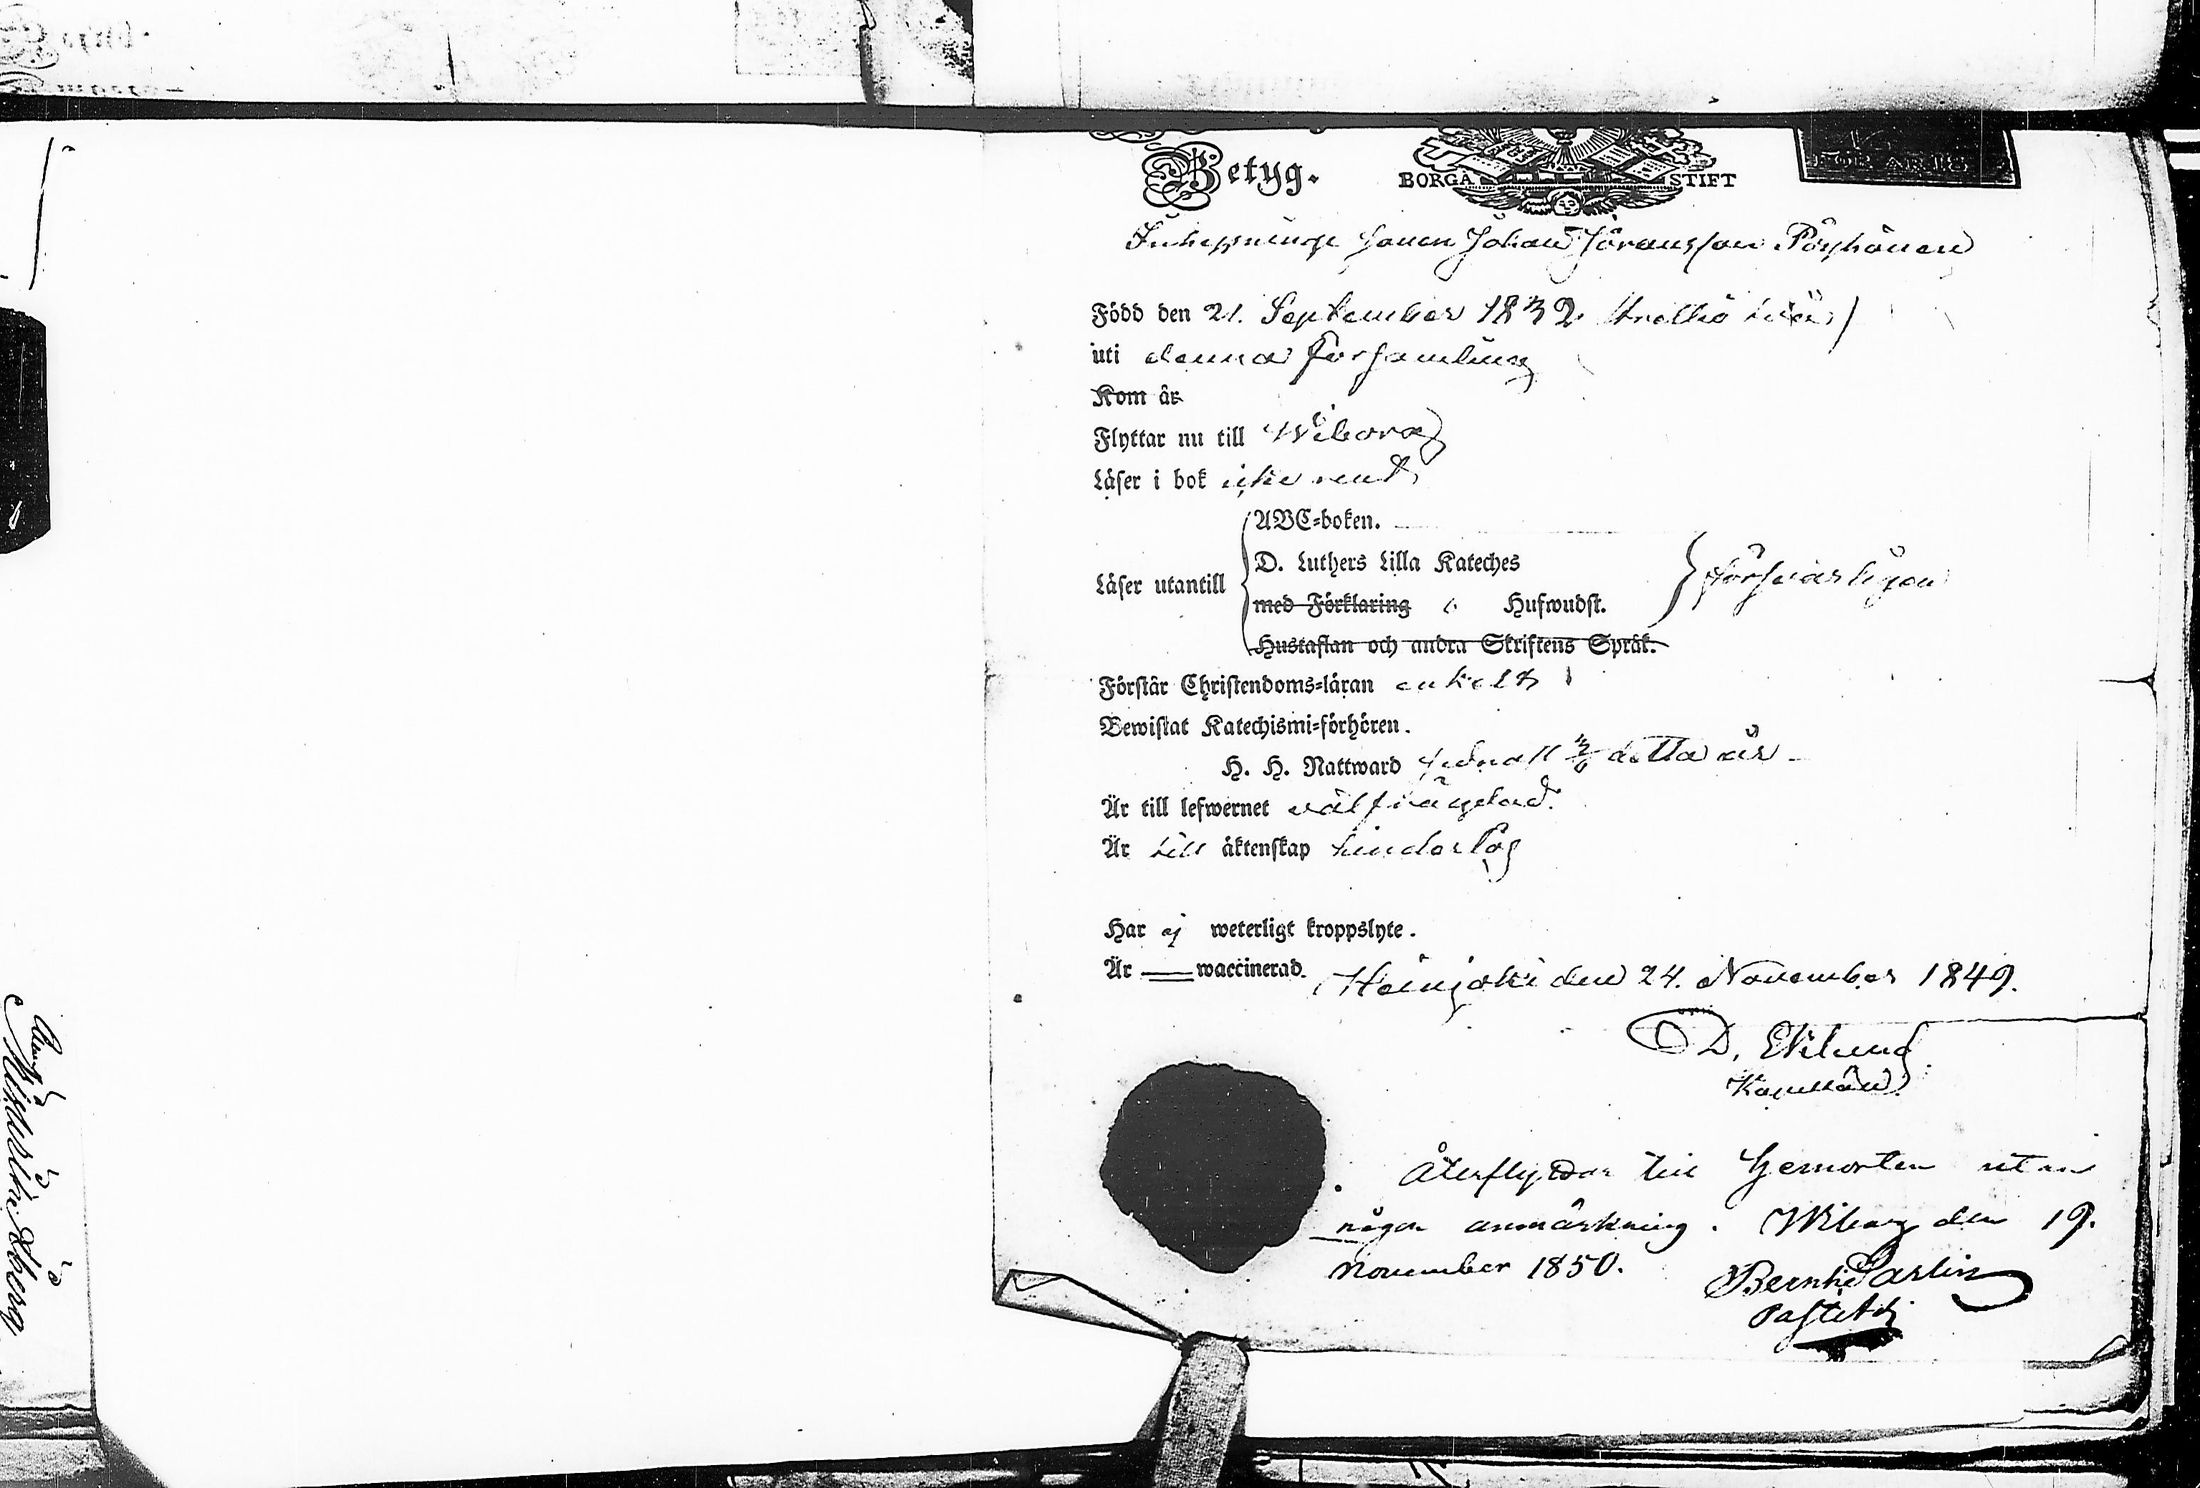 Betyg.
BORGÅ STIFT
FÖR ÅR 18
Inhysninge sonen Johan Göransson Pöyhönen
Född den 21. September 1832
uti denna Församling
Kom år
Flyttar nu till Wiborg
Läser i bok icke rent
ABC=boken.
D. Luthers Lilla Kateches
Läser utantill försvarligen
med Förklaring Hufwudst.
Hustaflan och andra Skriftens Språk.
Förstår Christendoms=läran enkelt
Bewistat Katechismi=förhören.
H. H. Nattward sednast detta år
Är till lefwernet välfrägdad.
Är till äktenskap hinderlös
Har ej weterligt kroppslyte.
Är waccinerad.
Heinjoki den 24. November 1849.
D. Eklund
Kapellan
Återflyttar till Hemorten utan
någon anmärkning. Wiborg den 19.
November 1850.
Bernh Carlin